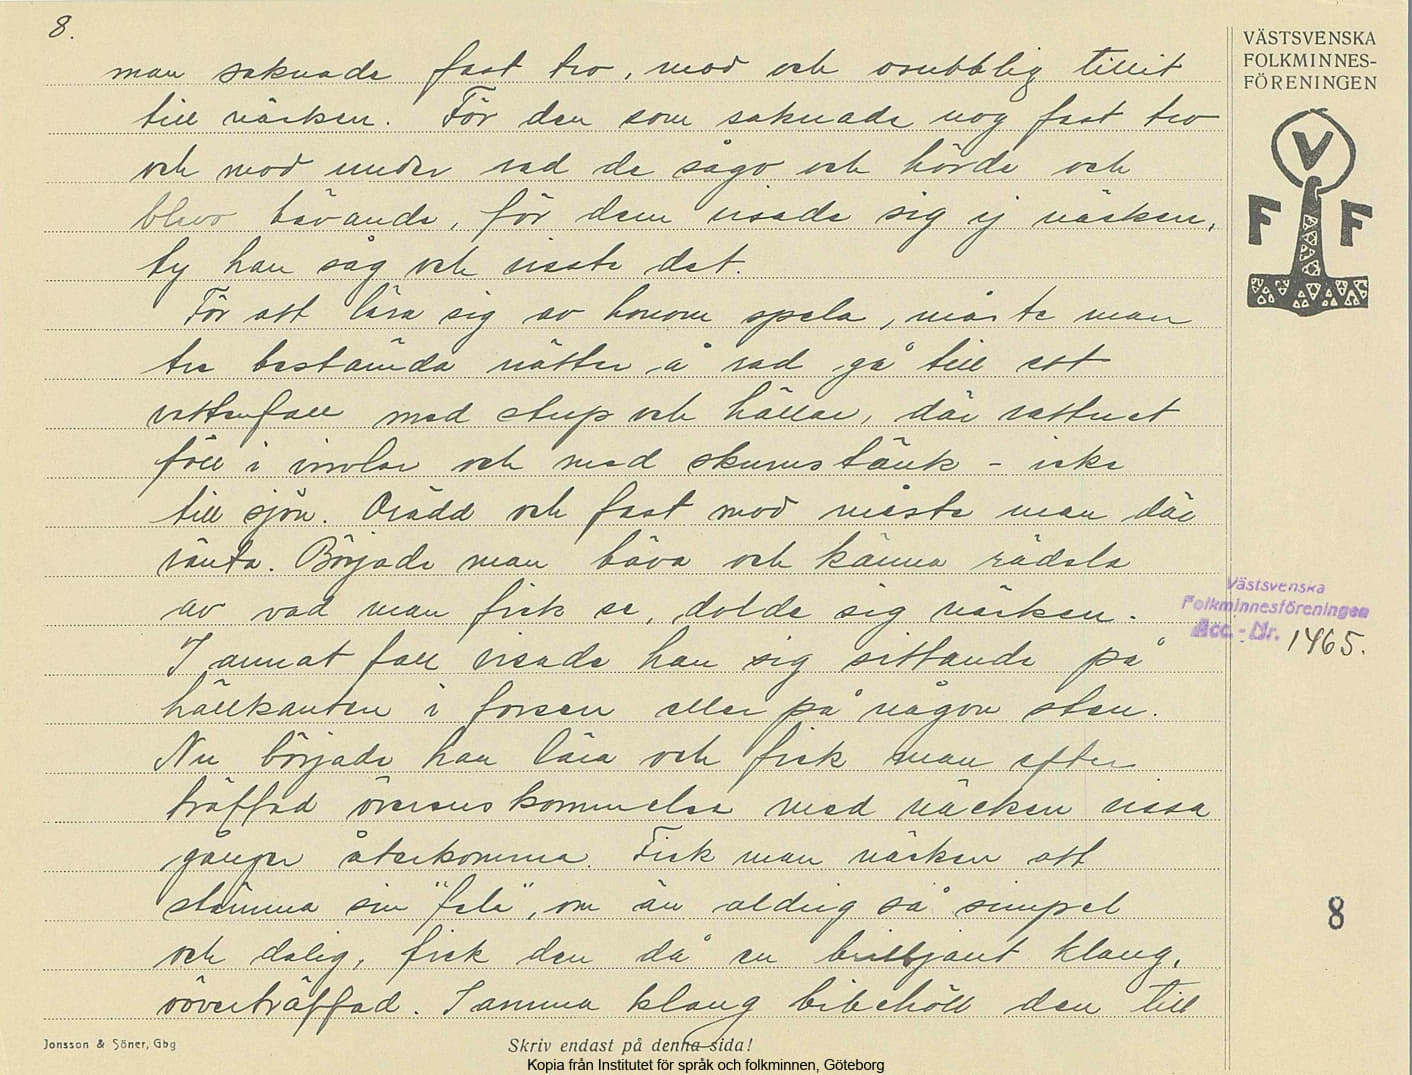 8.
man saknade fast tro, mod och orubblig tillit
till näcken. För den som saknade nog fast tro
och mod under vad de sågo och hörde och
blevo bävande, för dem visade sig ej näcken,
ty han såg och visste det.
För att lära sig av honom spela, måste man
tre bestämda nätter å rad gå till ett
vattenfall med stup och hällar, där vattnet
föll i virvlar och med skumstänk - icke
till sjön. Orädd och fast mod måste man där
vänta. Började man bäva och känna rädsla
av vad man fick se, dolde sig näcken.
I annat fall visade han sig sittande på
hällkanten i forsen eller på någon sten.
Nu började han lära och fick man efter
träffad överenskommelse med näcken vissa
gånger återkomma. Fick man näcken att
stämma sin "fela", om än aldrig så simpel
och dålig, fick den då en briljant klang,
oöverträffad. Samma klang bibehöll den till
VÄSTSVENSKA
FOLKMINNES-
FÖRENINGEN
V
F F
Västsvenska
Folkminnesföreningen
Acc. - Nr. 1465.
8
Jonsson & Söner, Gbg
Skriv endast på denna sida!
Kopia från Institutet för språk och folkminnen, Göteborg